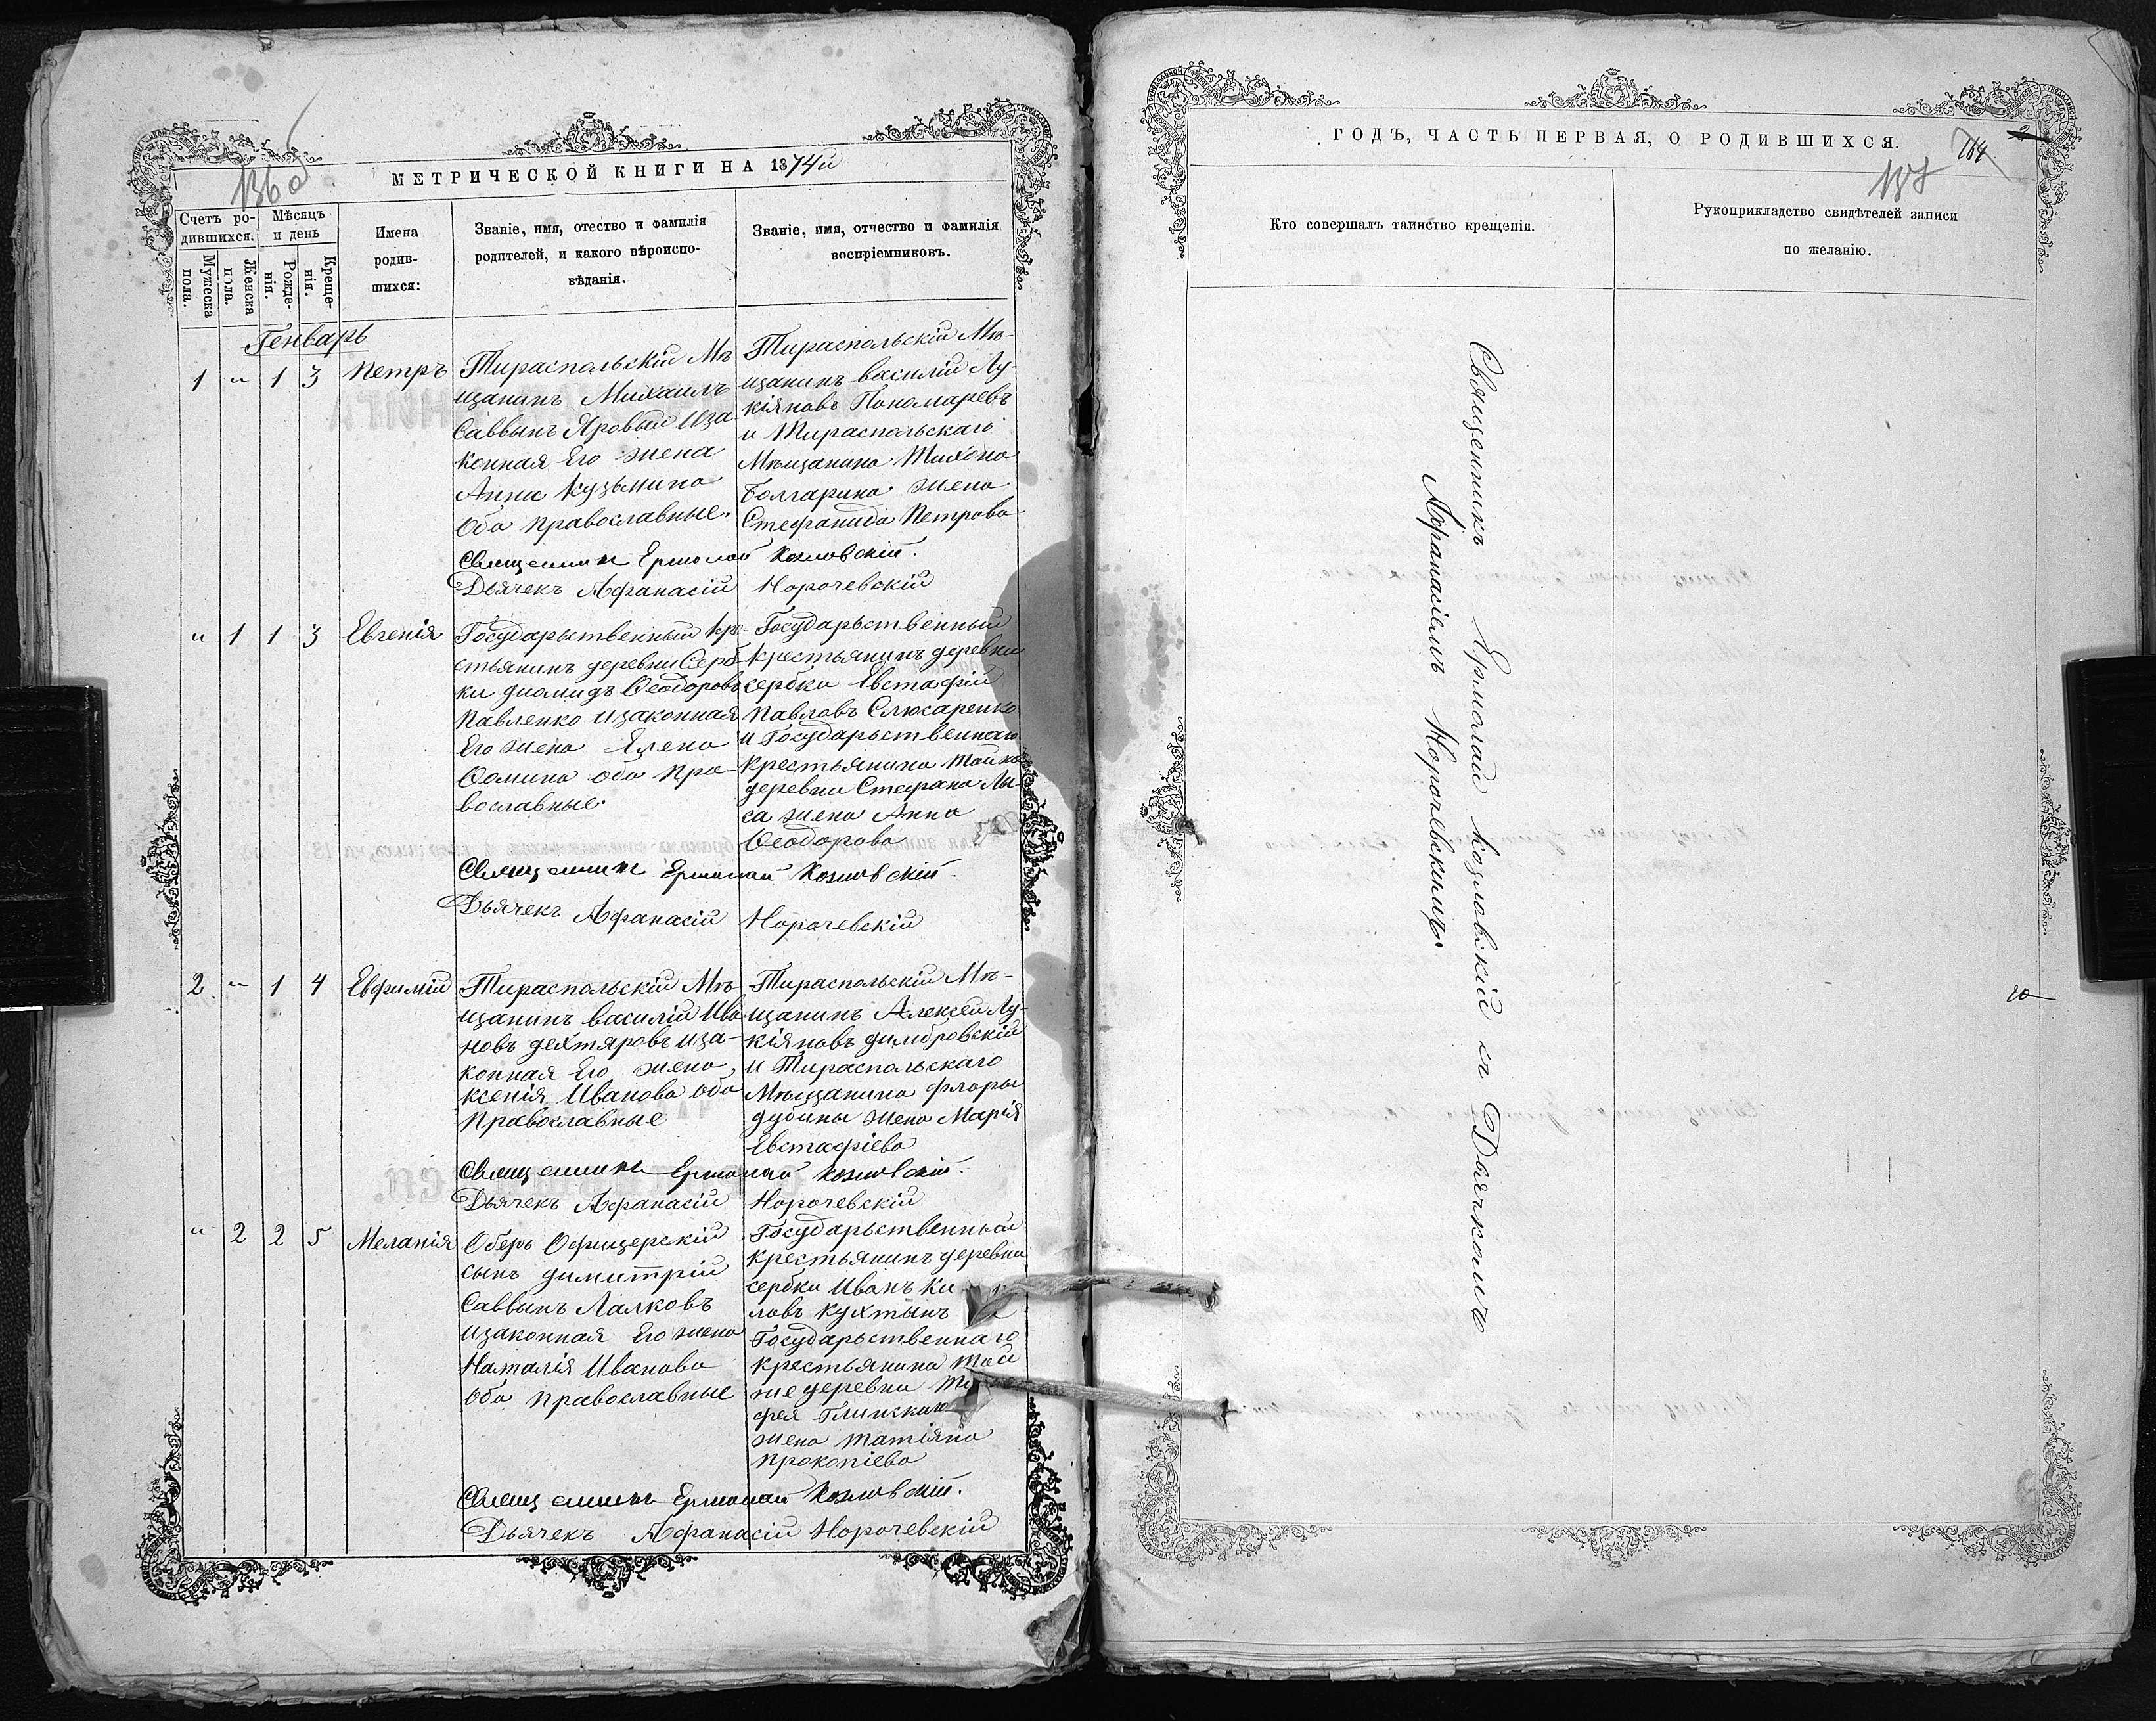 136 об
МЕТРИЧЕСКОЙ КНИГИ НА 1874й
Счетъ ро-
дившихся.
Мужеска
пола.
Женска
пола.
Мѣсяцъ
и день
Рожде-
нія.
Креще-
нія.
Имена
родив-
шихся:
Званіе, имя, отество и фамилія
родителей, и какого вѣроиспо-
вѣданія.
Званіе, имя, отчество и фамилія
воспріемниковъ.
Генварь
1 " 1 3 Петръ
Тираспольскій Мѣ
щанинъ Михаилъ
Саввынъ Яровый иза-
конная Его жена
Анна Кузьмина
оба православные.
Тираспольскій Мѣ-
щанинъ василій Лу-
кіяновъ Пономаревъ
и Тираспольскаго
Мѣщанина Тихона
Болгарина жена
Стефанида Петрова
Священникъ Ермолай Козловскій.
Дьячекъ Афанасій Норочевскій
" 1 1 3 Евгенія
Государьственный кре-
стьянинъ деревни Серб-
ки диамидъ Ѳеодоровъ
Павленко изаконная
Его жена Елена
Ѳомина оба пра-
вославные.
Государьственный
крестьянинъ деревни
сербки Евстафій
Павловъ Слюсаренко
и Государьственнаго
крестьянина тойже
деревни Стефана Лы-
са жена Анна
Ѳеодорова
Священникъ Ермолай Козловскій.
Дьячекъ Афанасій Норочевскій
2 " 1 4 Евфимій
Тираспольскій Мѣ
щанинъ василій Ива
новъ дехтяровъ иза-
конная Его жена
ксенія Иванова оба
Православные
Тираспольскій Мѣ-
щанинъ Алексей Лу-
кіяновъ димбровскій
и Тираспольскаго
Мѣщанина флоры
дубины жена Марія
Евстафіева
Священникъ Ермолай Козловскій.
Дьячекъ Афанасій Норочевскій
" 2 2 5 Меланія
Оберъ Офицерскій
сынъ димитрій
Саввынъ Лалковъ
изаконная Его жена
Наталія Иванова
оба православные
Государьственный
крестьянинъ деревни
сербки Иванъ Ки
ловъ кухтынъ
Государьственнаго
крестьянина той
же деревни
фея Глинскаго
жена татіяна
прокопіева
Священникъ Ермолай Козловскій.
Дьячекъ Афанасій Норочевскій
ГОДЪ, ЧАСТЬ ПЕРВАЯ, О РОДИВШИХСЯ.
137
Кто совершалъ таинство крещенія.
Рукоприкладство свидѣтелей записи
по желанію.
Священникъ Ермолай Козловскій съ Дьячкомъ
Афанасіемъ Норочевскимъ.